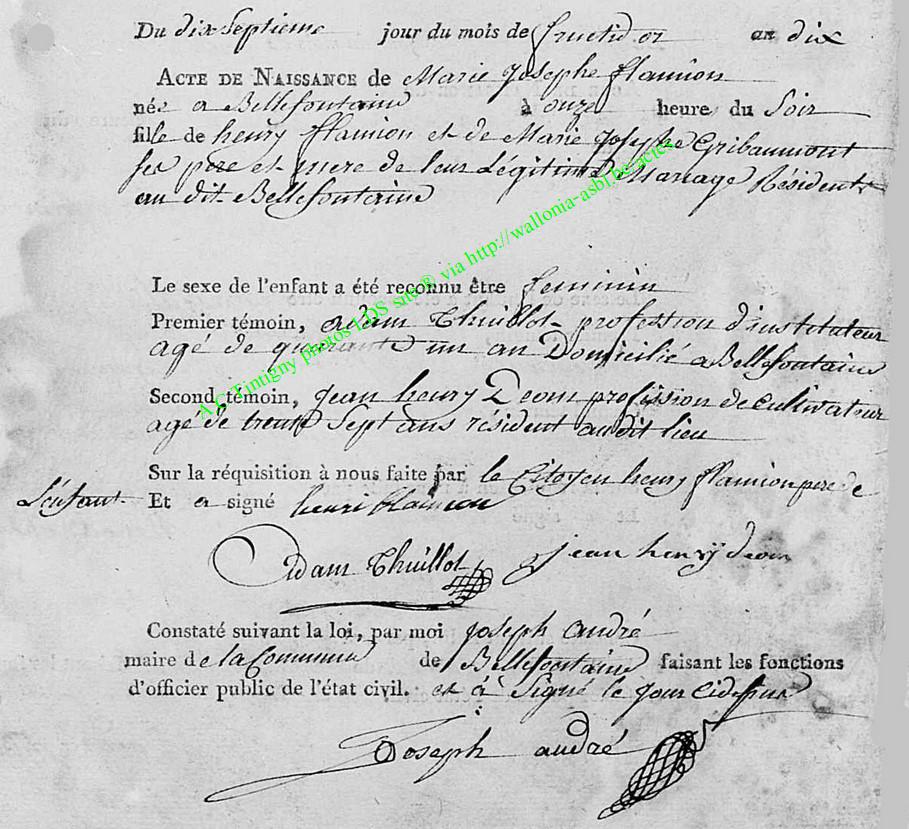 Du dix Septieme jour du mois de fructidor an dix
ACTE DE NAISSANCE de Marie Josephe flamion
née a Bellefontaine à onze heure du Soir
fille de henry flamion et de Marie Josephe Gribaumont
ses pere et mere de leur Légitime Mariage Résidents
au dit Bellefontaine
Le sexe de l'enfant a été reconnu être feminin
Premier témoin, adam Thuillot profession d'instituteur
agé de quarante un an Domicilié a Bellefontaine
Second témoin, Jean henry Deom profession de cultivateur
agé de trente Sept ans résident au dit lieu
Sur la réquisition à nous faite par le Citoyen henry flamion pere de
L'enfant Et a signé henri flamion
Adam Thuillot jean henry deom
Constaté suivant la loi, par moi Joseph andré
maire de la Commune de Bellefontaine faisant les fonctions
d'officier public de l'état civil. et à Signé le Jour cidessus
Joseph andré
A.C. Tintigny photos LDS site® via http://wallonia-asbl.be/actes